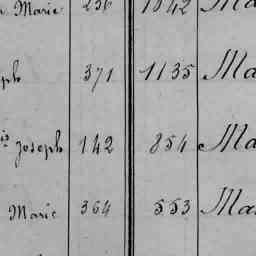 Marie 236 1842 Ma
ph 371 1135 Ma
is Joseph 142 854 Ma
Marie 364 553 Ma